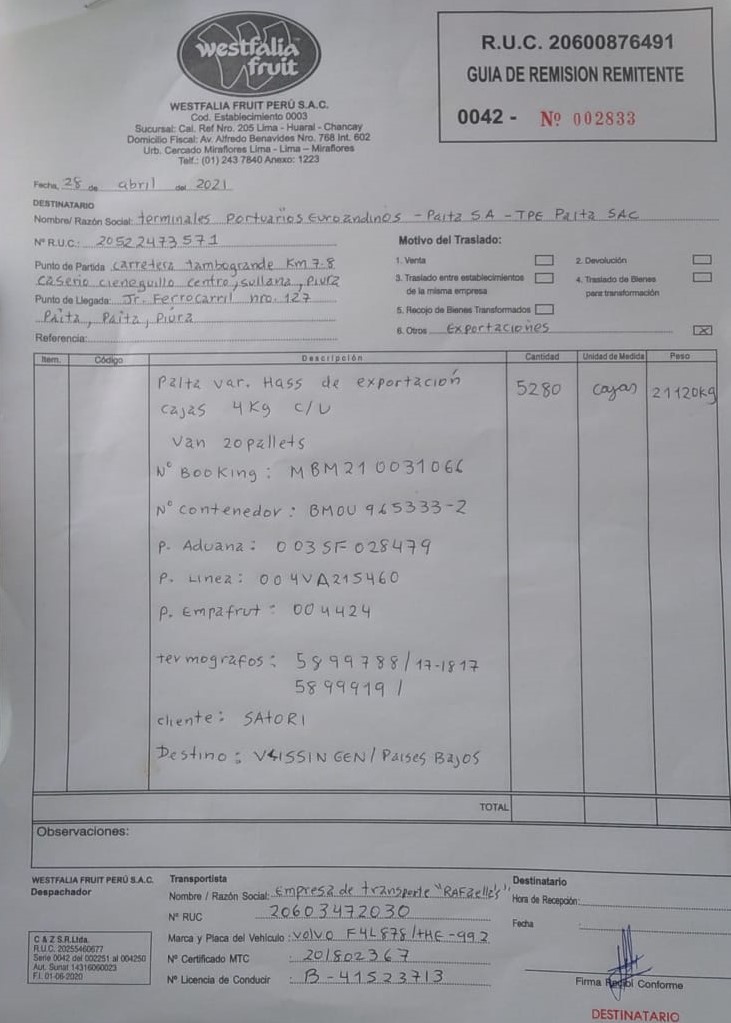 westfalia
fruit
WESTFALIA FRUIT PERÚ S.A.C.
Cod. Establecimiento 0003
Sucursal: Cal. Ref Nro. 205 Lima - Huaral - Chancay
Domicilio Fiscal: Av. Alfredo Benavides Nro. 768 Int. 602
Urb. Cercado Miraflores Lima - Lima – Miraflores
Telf.: (01) 243 7840 Anexo: 1223
R.U.C. 20600876491
GUIA DE REMISION REMITENTE
0042 - Nº 002833
Fecha, 28 de abril del 2021
DESTINATARIO
Nombre/ Razón Social: terminales Portuarios Euroandinos - Paita SA - TPE Paita SAC
Nº R.U.C.: 20522473571
Punto de Partida: carretera tambogrande Km 7.8
caserio cieneguillo centro, sullana, Piura
Punto de Llegada: Jr. Ferrocarril nro. 127
Paita, Paita, Piura
Referencia:
Motivo del Traslado:
1. Venta
2. Devolución
3. Traslado entre establecimientos de la misma empresa
4. Traslado de Bienes para transformación
5. Recojo de Bienes Transformados
6. Otros Exportaciones X
Item. Código Descripción Cantidad Unidad de Medida Peso
Palta var. Hass de exportación 5280 cajas 21120kg
cajas 4Kg c/u
Van 20 pallets
Nº Booking: MBM210031066
Nº contenedor: BMOU 965333-2
P. Aduana: 003SF028479
P. Linea: 004VA215460
P. Empafrut: 004424
termografos: 5899788/17-1817
5899919/
cliente: SATORI
Destino: VLISSINGEN/Paises Bajos
TOTAL
Observaciones:
WESTFALIA FRUIT PERÚ S.A.C.
Despachador
C & Z S.R.Ltda.
R.U.C. 20255460677
Serie 0042 del 002251 al 004250
Aut. Sunat 14316060023
F.I. 01-06-2020
Transportista
Nombre / Razón Social: Empresa de transporte "RAFaelle's"
Nº RUC 20603472030
Marca y Placa del Vehículo: Volvo F4L878/tHE-992
Nº Certificado MTC 201802367
Nº Licencia de Conducir B-41523713
Destinatario
Hora de Recepción:
Fecha
Firma Recibí Conforme
DESTINATARIO